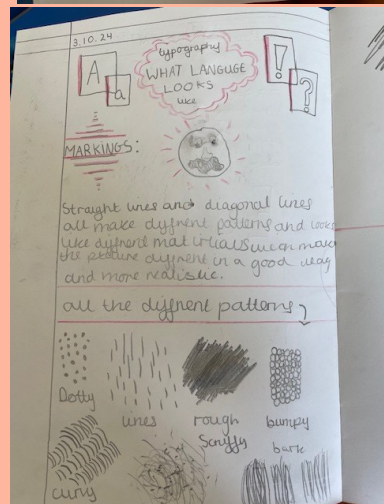 3.10.24
A
a
typography
WHAT LANGUGE
LOOKS
like
!
?
MARKINGS:
Straight lines and diagonal lines
all make dyfrent patterns and looks
like dyfrent mat irials wich make
the picture dyfrent in a good way
and more realistic.
all the diffrent patterns
Dotty
lines
rough
Scruffy
bumpy
curvy
bark